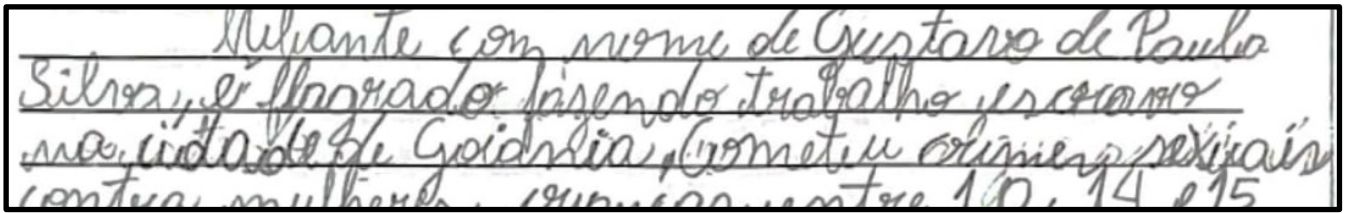 Meliante com nome de Gustavo de Paula
Silva, é flagrado fazendo trabalho escravo
na cidade de Goiânia, Cometeu crimes sexuais
contra mulheres, crianças entre 10, 14 e 15